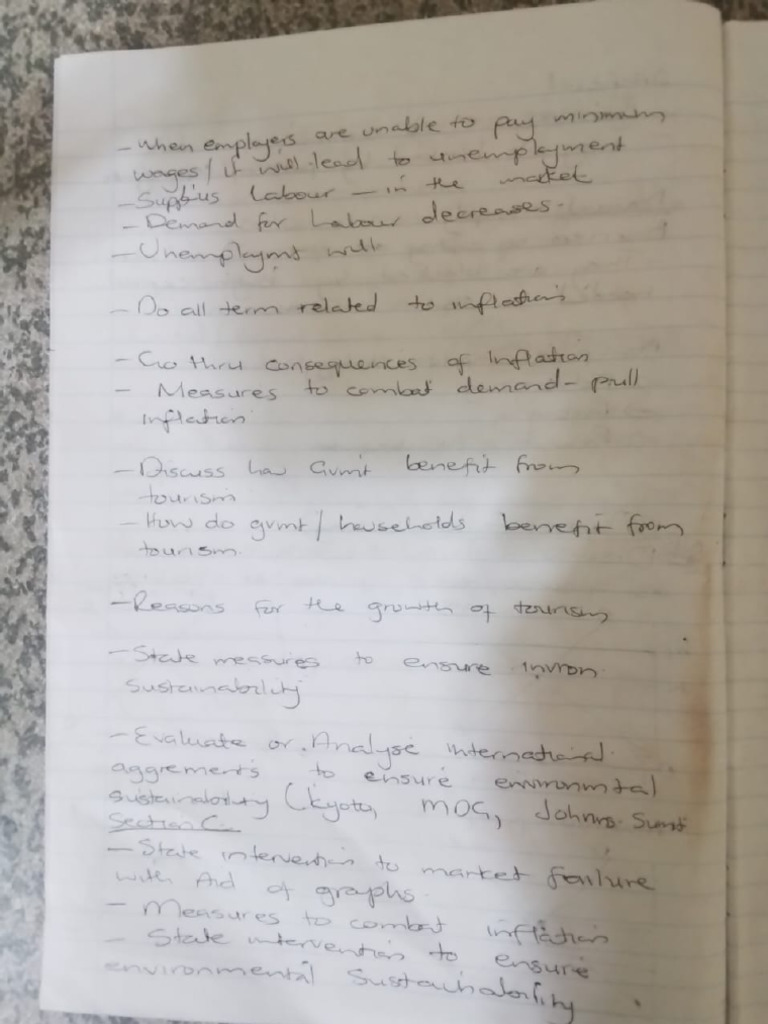 - When employers are unable to pay minimum
wages / it will lead to unemployment
- Supplus Labour - in the market
- Demand for Labour decreases.
- Unemploymt will
- Do all term related to inflation
- Go thru consequences of Inflation
- Measures to combat demand-pull
inflation
- Discuss how Gvmt benefit from
tourism
- How do gvmt / households benefit from
tourism.
- Reasons for the growth of tourism
- State measures to ensure inviron
sustainability
- Evaluate or Analyse international
aggrements to ensure environmtal
sustainability (Kyoto, MDG, Johns. Sumt
Section C
- State intervention to market failure
with Aid of graphs.
- Measures to combat inflation
- State intervention to ensure
environmental Sustainability